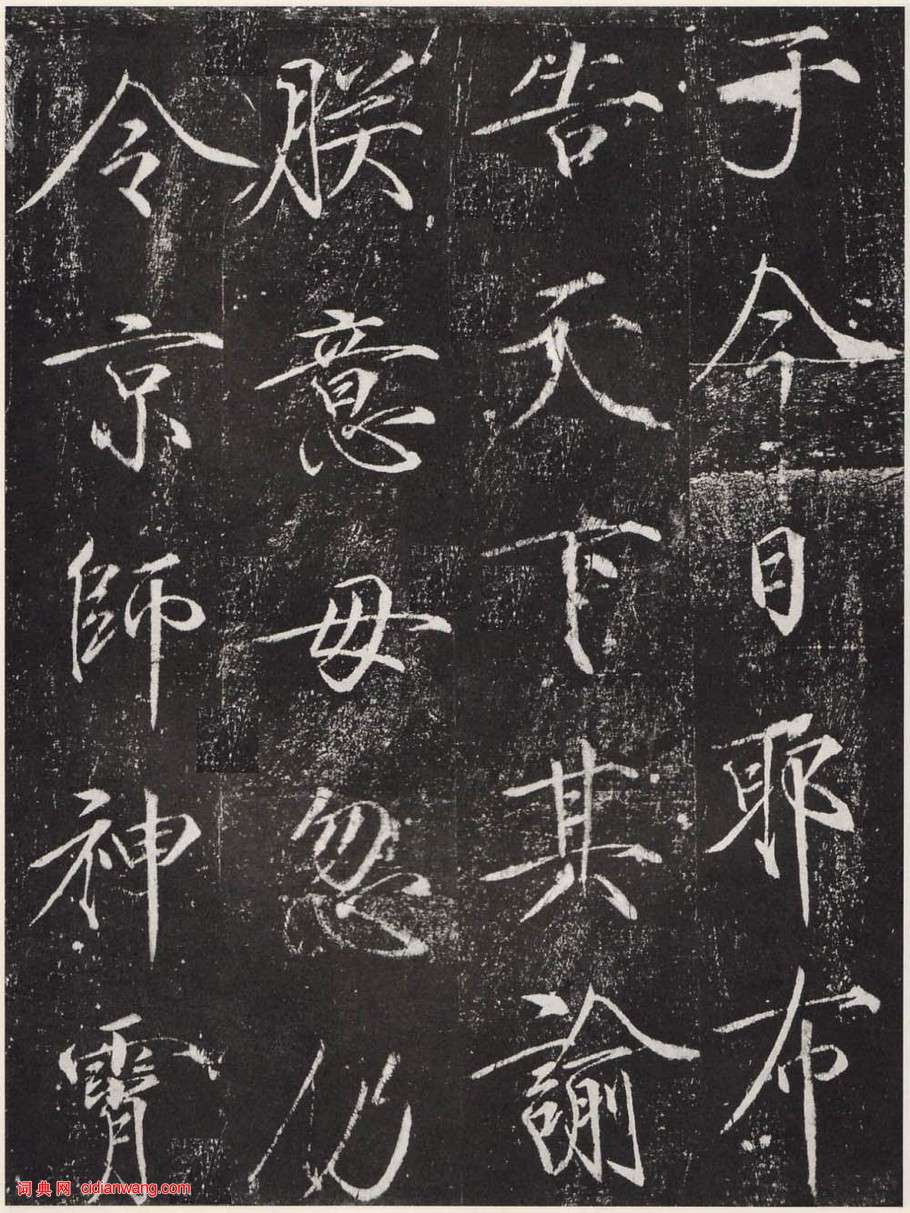 于今日耶布
告天下其諭
朕意毋忽仍
令京師神霄
词典网 cidianwang.com